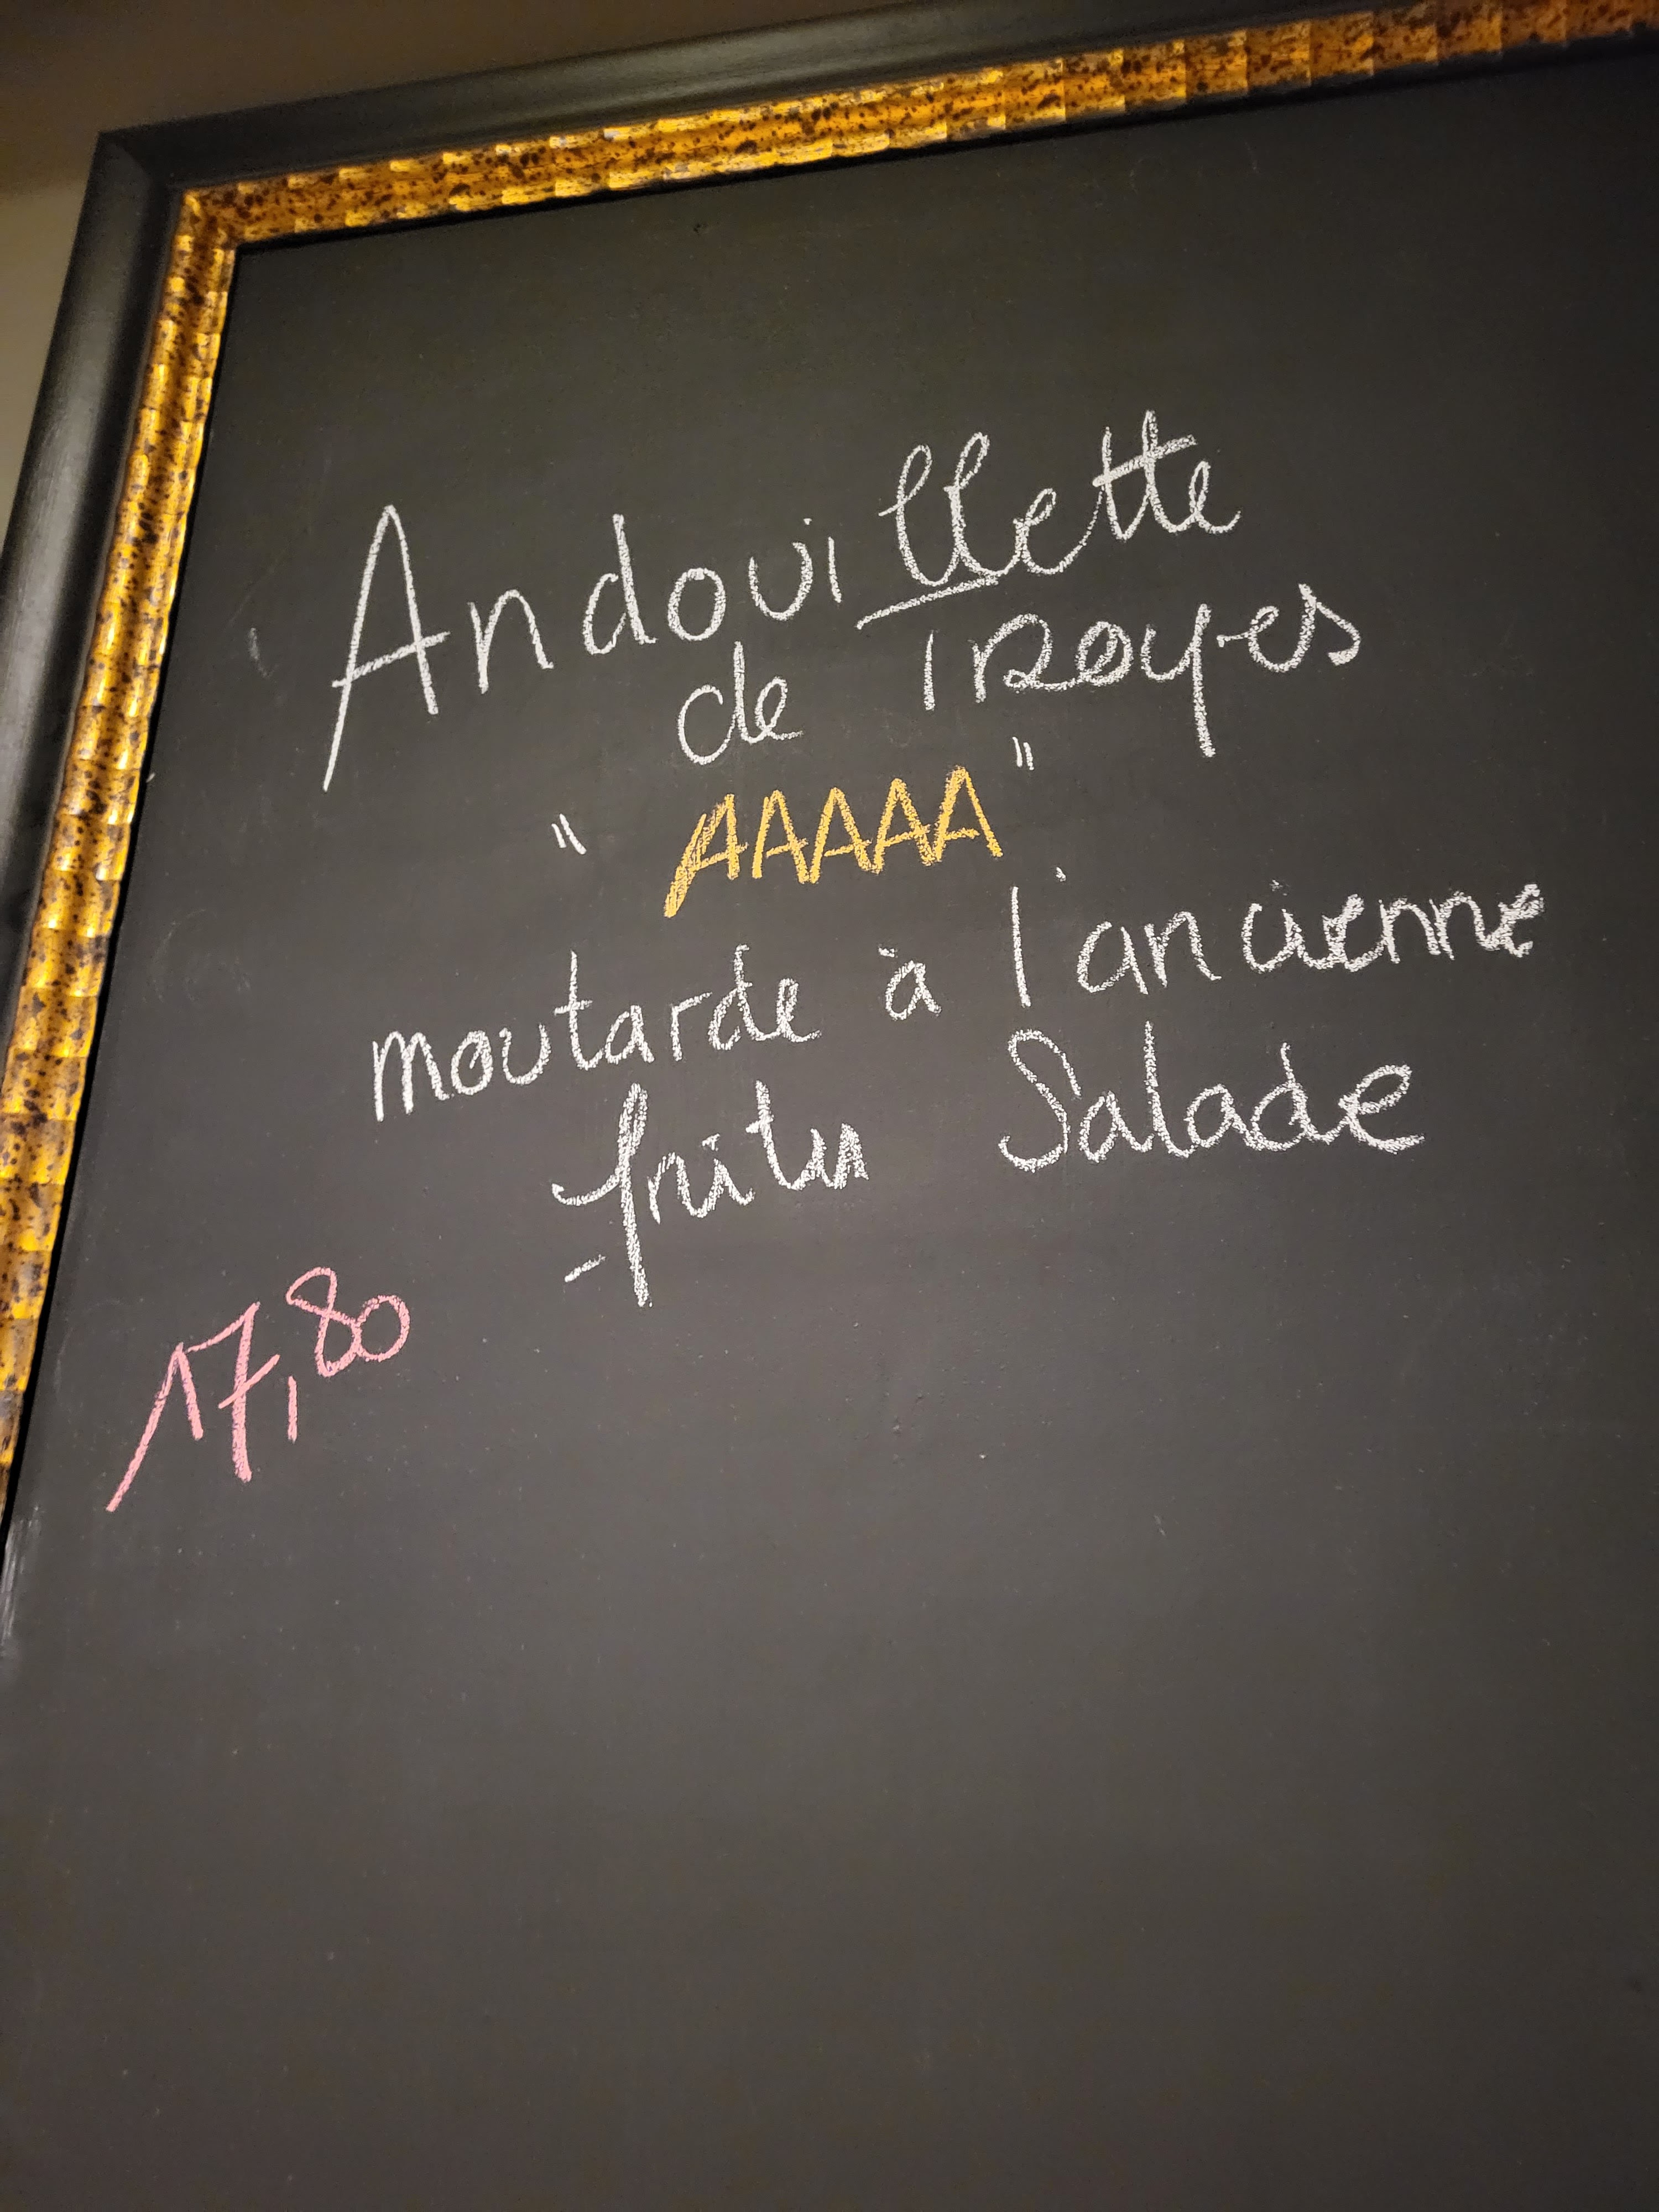 Andouillette
de Troyes
"AAAAA"
moutarde à l'ancienne
frites Salade
17,80